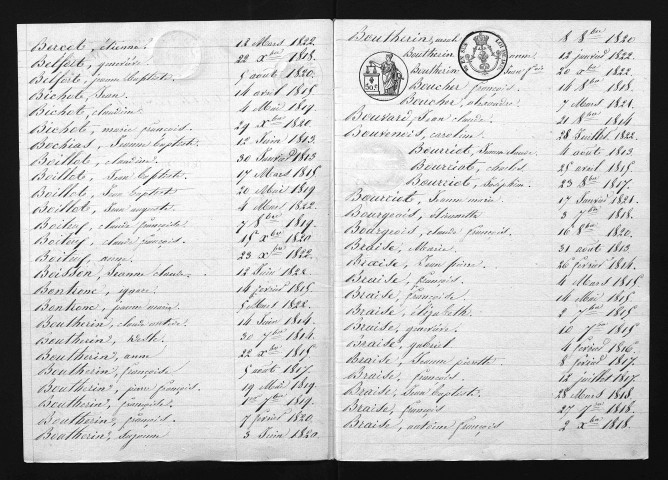 Bercot, étienne. 18 Mars 1822.
Belfort, 22 Xbre 1818.
Belfort, jeanne Baptiste 5 aout 1820.
Bichot, Jean 14 avril 1815.
Bichot, claudine 4 Mai 1819.
Bichot, marie françois. 29 Xbre 1820.
Bochias, Jeanne baptiste 12 Juin 1813.
Boillot, claudine 30 Janvier 1813
Boillot, Jean baptiste 17 Mars 1815
Boillot, Jean baptiste 20 Mai 1819
Boillot, Jean auguste 4 Mars 1822.
Boiteux, claude françoise 7 8bre 1819.
Boiteux, claude françois. 15 Xbre 1820
Boiteux, anne 23 Xbre 1822.
Boisson, Jeanne claude. 12 Juin 1822.
Bonhonc, ignace 14 février 1815.
Bonhonc, jeanne marie 5 Mars 1822.
Boutherin, claude antoine 14 Juin 1814.
Boutherin, 30 7bre 1814.
Boutherin, anne 22 Xbre 1815.
Boutherin, françoise 5 aout 1817.
Boutherin, pierre françois. 19 Mai 1819.
Boutherin, françoise. 1er 7bre 1819.
Boutherin, françois. 7 février 1820.
Boutherin, 3 Juin 1820.
Boutherin, 8 8bre 1820
Boutherin anne 12 janvier 1822.
Boutherin Jean fois 20 Xbre 1822.
Boucher françois. 14 8bre 1818.
Boucher, alexandre 7 Mars 1821.
Bouvard, Jean claude. 21 8bre 1814
Bouvenois, caroline 28 Juillet 1822.
Bourriot, Jeanne claude 4 aout 1813
Bourriot, charles 25 avril 1815.
Bourriot, Joséphine. 23 8bre 1817.
Bourriot, Jeanne marie 17 Janvier 1821.
Bourgeois, étiennette 3 7bre 1818.
Bourgeois, claude françois. 16 8bre 1820.
Braise, Marie. 31 aout 1813
Braise, Jean pierre. 26 février 1814.
Braise, françois. 4 Mars 1815.
Braise, françoise 14 Mai 1815.
Braise, élizabeth. 2 7bre 1815
Braise, 10 7bre 1815
Braise, gabriel 4 février 1816.
Braise, Jeanne pierrette 8 février 1817.
Braise, françois. 12 juillet 1817.
Braise, Jean baptiste 28 Mars 1818.
Braise, françois 27 7bre 1818.
Braise, antoine françois 2 Xbre 1818.